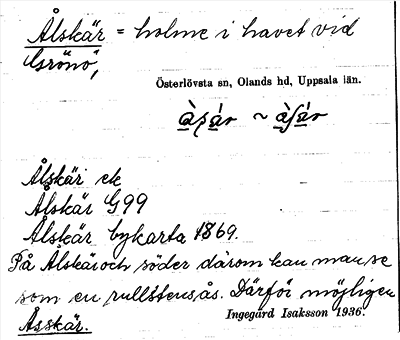 Ålskär = holme i havet vid
Grönö,
Österlövsta sn, Olands hd, Uppsala län.
Ålskär ek
Ålskär G99
Ålskär bykarta 1869.
På Ålskär och söder därom kan man se
som en rullstensås. Därför möjligen
Åsskär.
Ingegärd Isaksson 1936.